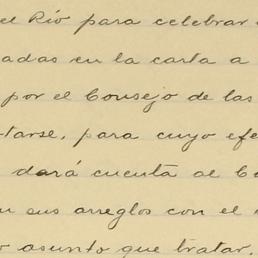 el Río para celebrar
adas en la carta a
por el Consejo de las
tarse, para cuyo efe
dará cuenta al Co
sus arreglos con el
asunto que tratar.